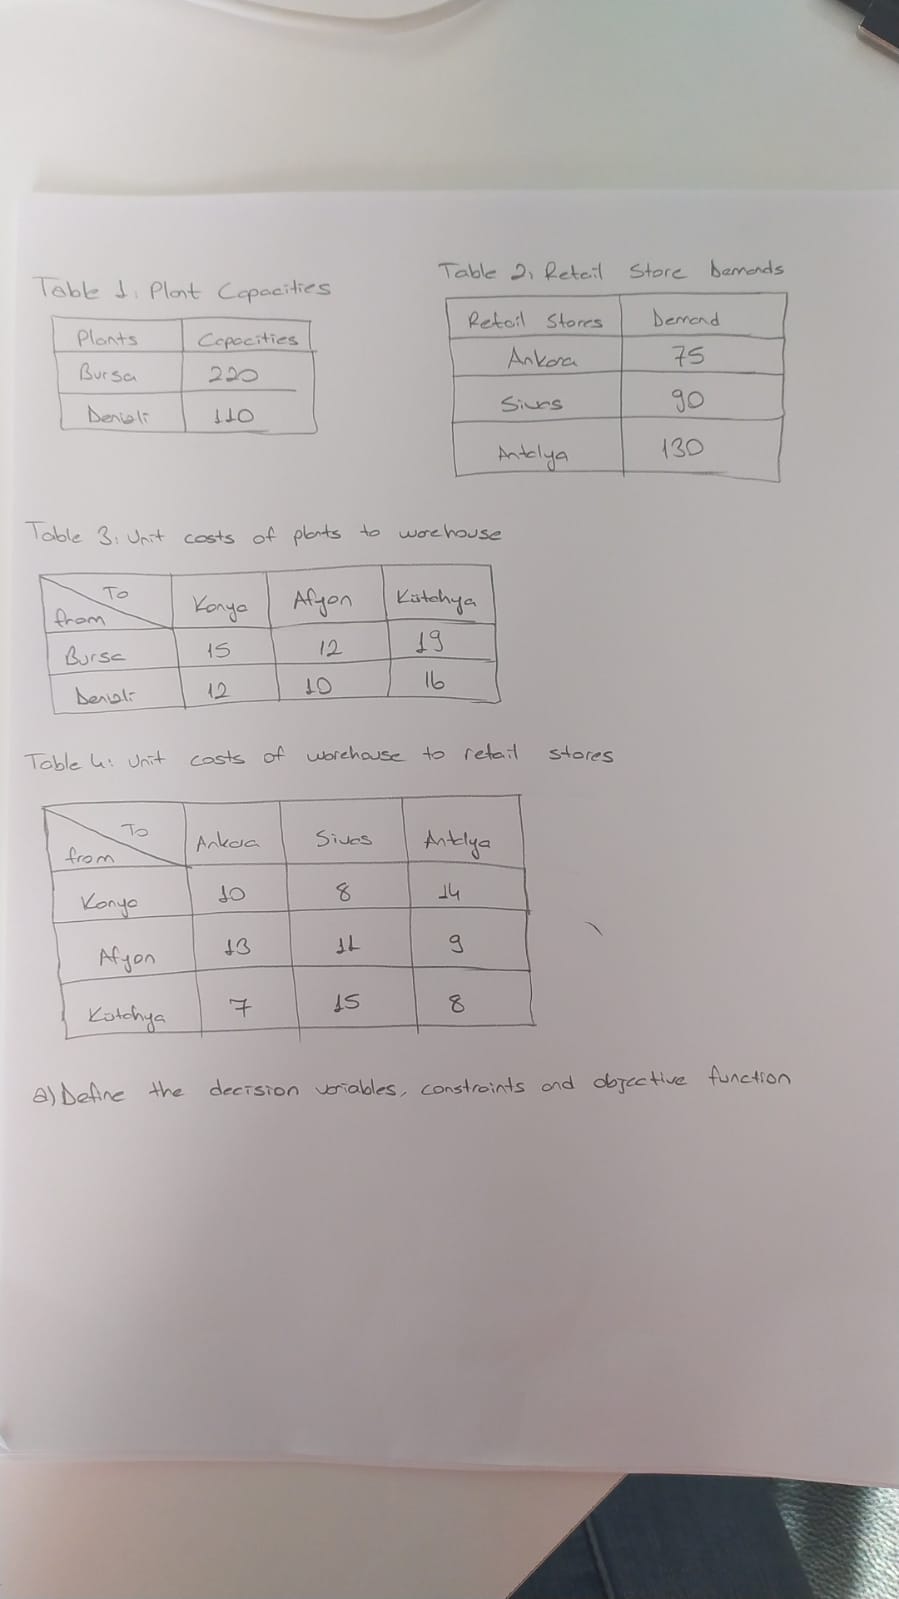 Table 1: Plant Capacities
Plants Capacities
Bursa 220
Denizli 110
Table 2: Retail Store Demands
Retail Stores Demand
Ankara 75
Sivas 90
Antalya 130
Table 3: Unit costs of plants to warehouse
To
from Konya Afyon Kütahya
Bursa 15 12 19
Denizli 12 10 16
Table 4: Unit costs of warehouse to retail stores
To
from Ankara Sivas Antalya
Konya 10 8 14
Afyon 13 11 9
Kütahya 7 15 8
a) Define the decision variables, constraints and objective function